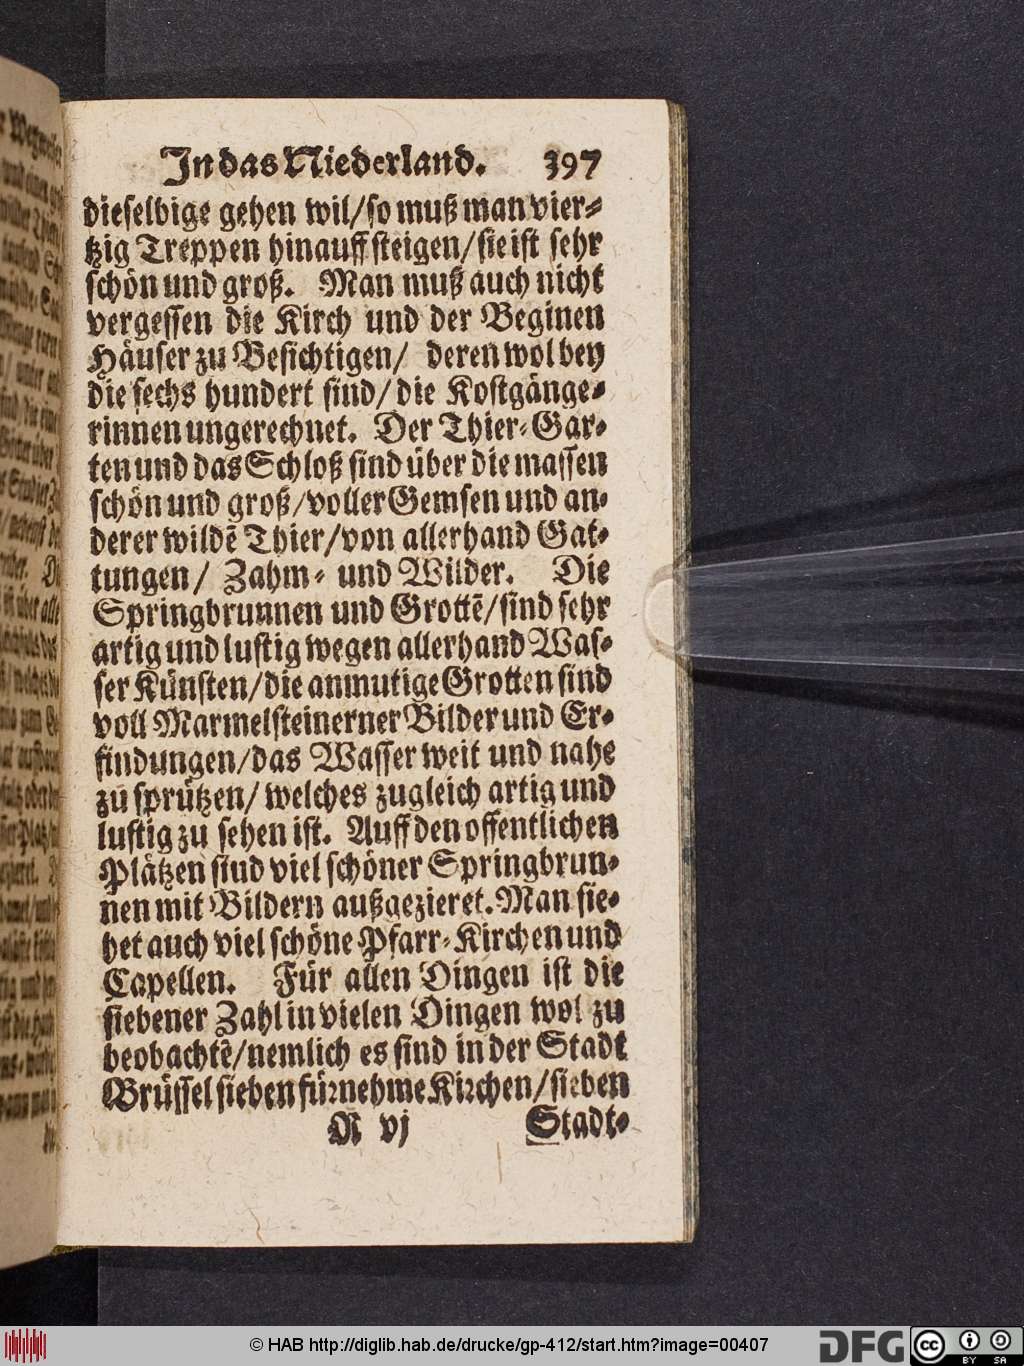 In das Niederland. 397
dieselbige gehen wil/so muß man vier-
tzig Treppen hinauff steigen/sie ist sehr
schön und groß. Man muß auch nicht
vergessen die Kirch und der Beginen
Häuser zu Besichtigen/ deren wol bey
die sechs hundert sind/die Kostgänge-
rinnen ungerechnet. Der Thier-Gar-
ten und das Schloß sind über die massen
schön und groß/voller Gemsen und an-
derer wildẽ Thier/von allerhand Gat-
tungen/ Zahm- und Wilder. Die
Springbrunnen und Grottẽ/sind sehr
artig und lustig wegen allerhand Was-
ser Künsten/die anmutige Grotten sind
voll Marmelsteinerner Bilder und Er-
findungen/das Wasser weit und nahe
zu sprützen/ welches zugleich artig und
lustig zu sehen ist. Auff den offentlichen
Plätzen sind viel schöner Springbrun-
nen mit Bildern außgezieret. Man sie-
het auch viel schöne Pfarr-Kirchen und
Capellen. Für allen Dingen ist die
siebener Zahl in vielen Dingen wol zu
beobachtẽ/nemlich es sind in der Stadt
Brüssel sieben fürnehme Kirchen/sieben
R vj Stadt-
© HAB http://diglib.hab.de/drucke/gp-412/start.htm?image=00407
DFG
cc BY SA